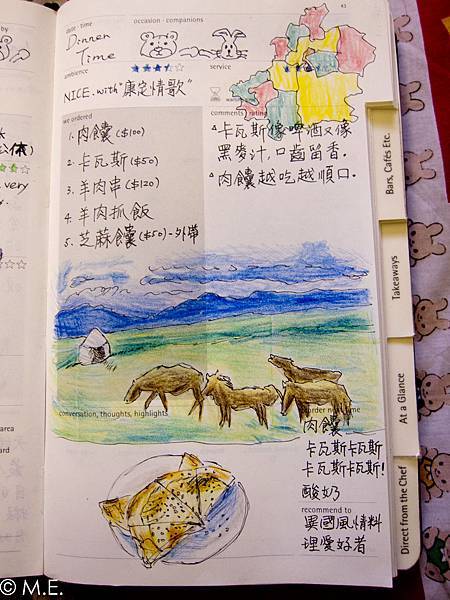 by
43
date · time
occasion · companions
Dinner
Time
ambience
service
NICE. with "康定情歌"
we ordered
comments · rating
1. 肉饢 ($100)
2. 卡瓦斯 ($50)
3. 羊肉串 ($120)
4. 羊肉抓飯
5. 芝麻饢 ($50) - 外帶
卡瓦斯像啤酒又像
黑麥汁,口齒留香.
肉饢越吃越順口.
very
conversation, thoughts, highlights
order next time
肉饢!
卡瓦斯卡瓦斯
卡瓦斯卡瓦斯!
酸奶
recommend to
異國風情料
理愛好者
area
Bars, Cafés Etc.
Takeaways
At a Glance
Direct from the Chef
© M.E.